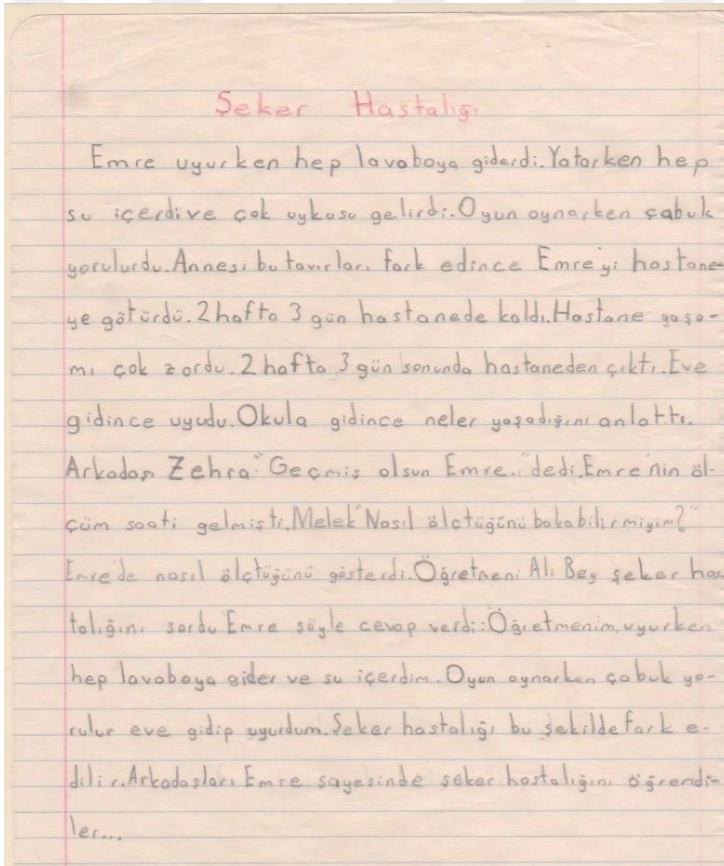 Şeker Hastalığı
Emre uyurken hep lavaboya giderdi. Yatarken hep
su içerdi ve çok uykusu gelirdi. Oyun oynarken çabuk
yorulurdu. Annesi bu tavırları fark edince Emre'yi hastane-
ye götürdü. 2 hafta 3 gün hastanede kaldı. Hastane yaşa-
mı çok zordu. 2 hafta 3 gün sonunda hastaneden çıktı. Eve
gidince uyudu. Okula gidince neler yaşadığını anlattı.
Arkadaşı Zehra "Geçmiş olsun Emre." dedi. Emre'nin öl-
çüm saati gelmişti. Melek "Nasıl ölçtüğünü bakabilir miyim?"
Emre'de nasıl ölçtüğünü gösterdi. Öğretneni Ali Bey şeker has
talığını sordu Emre şöyle cevap verdi: Öğretmenim, uyurken
hep lavaboya gider ve su içerdim. Oyun oynarken çabuk yo-
rulur eve gidip uyurdum. Şeker hastalığı bu şekilde fark e-
dilir. Arkadaşları Emre sayesinde şeker hastalığını öğrendi-
ler...